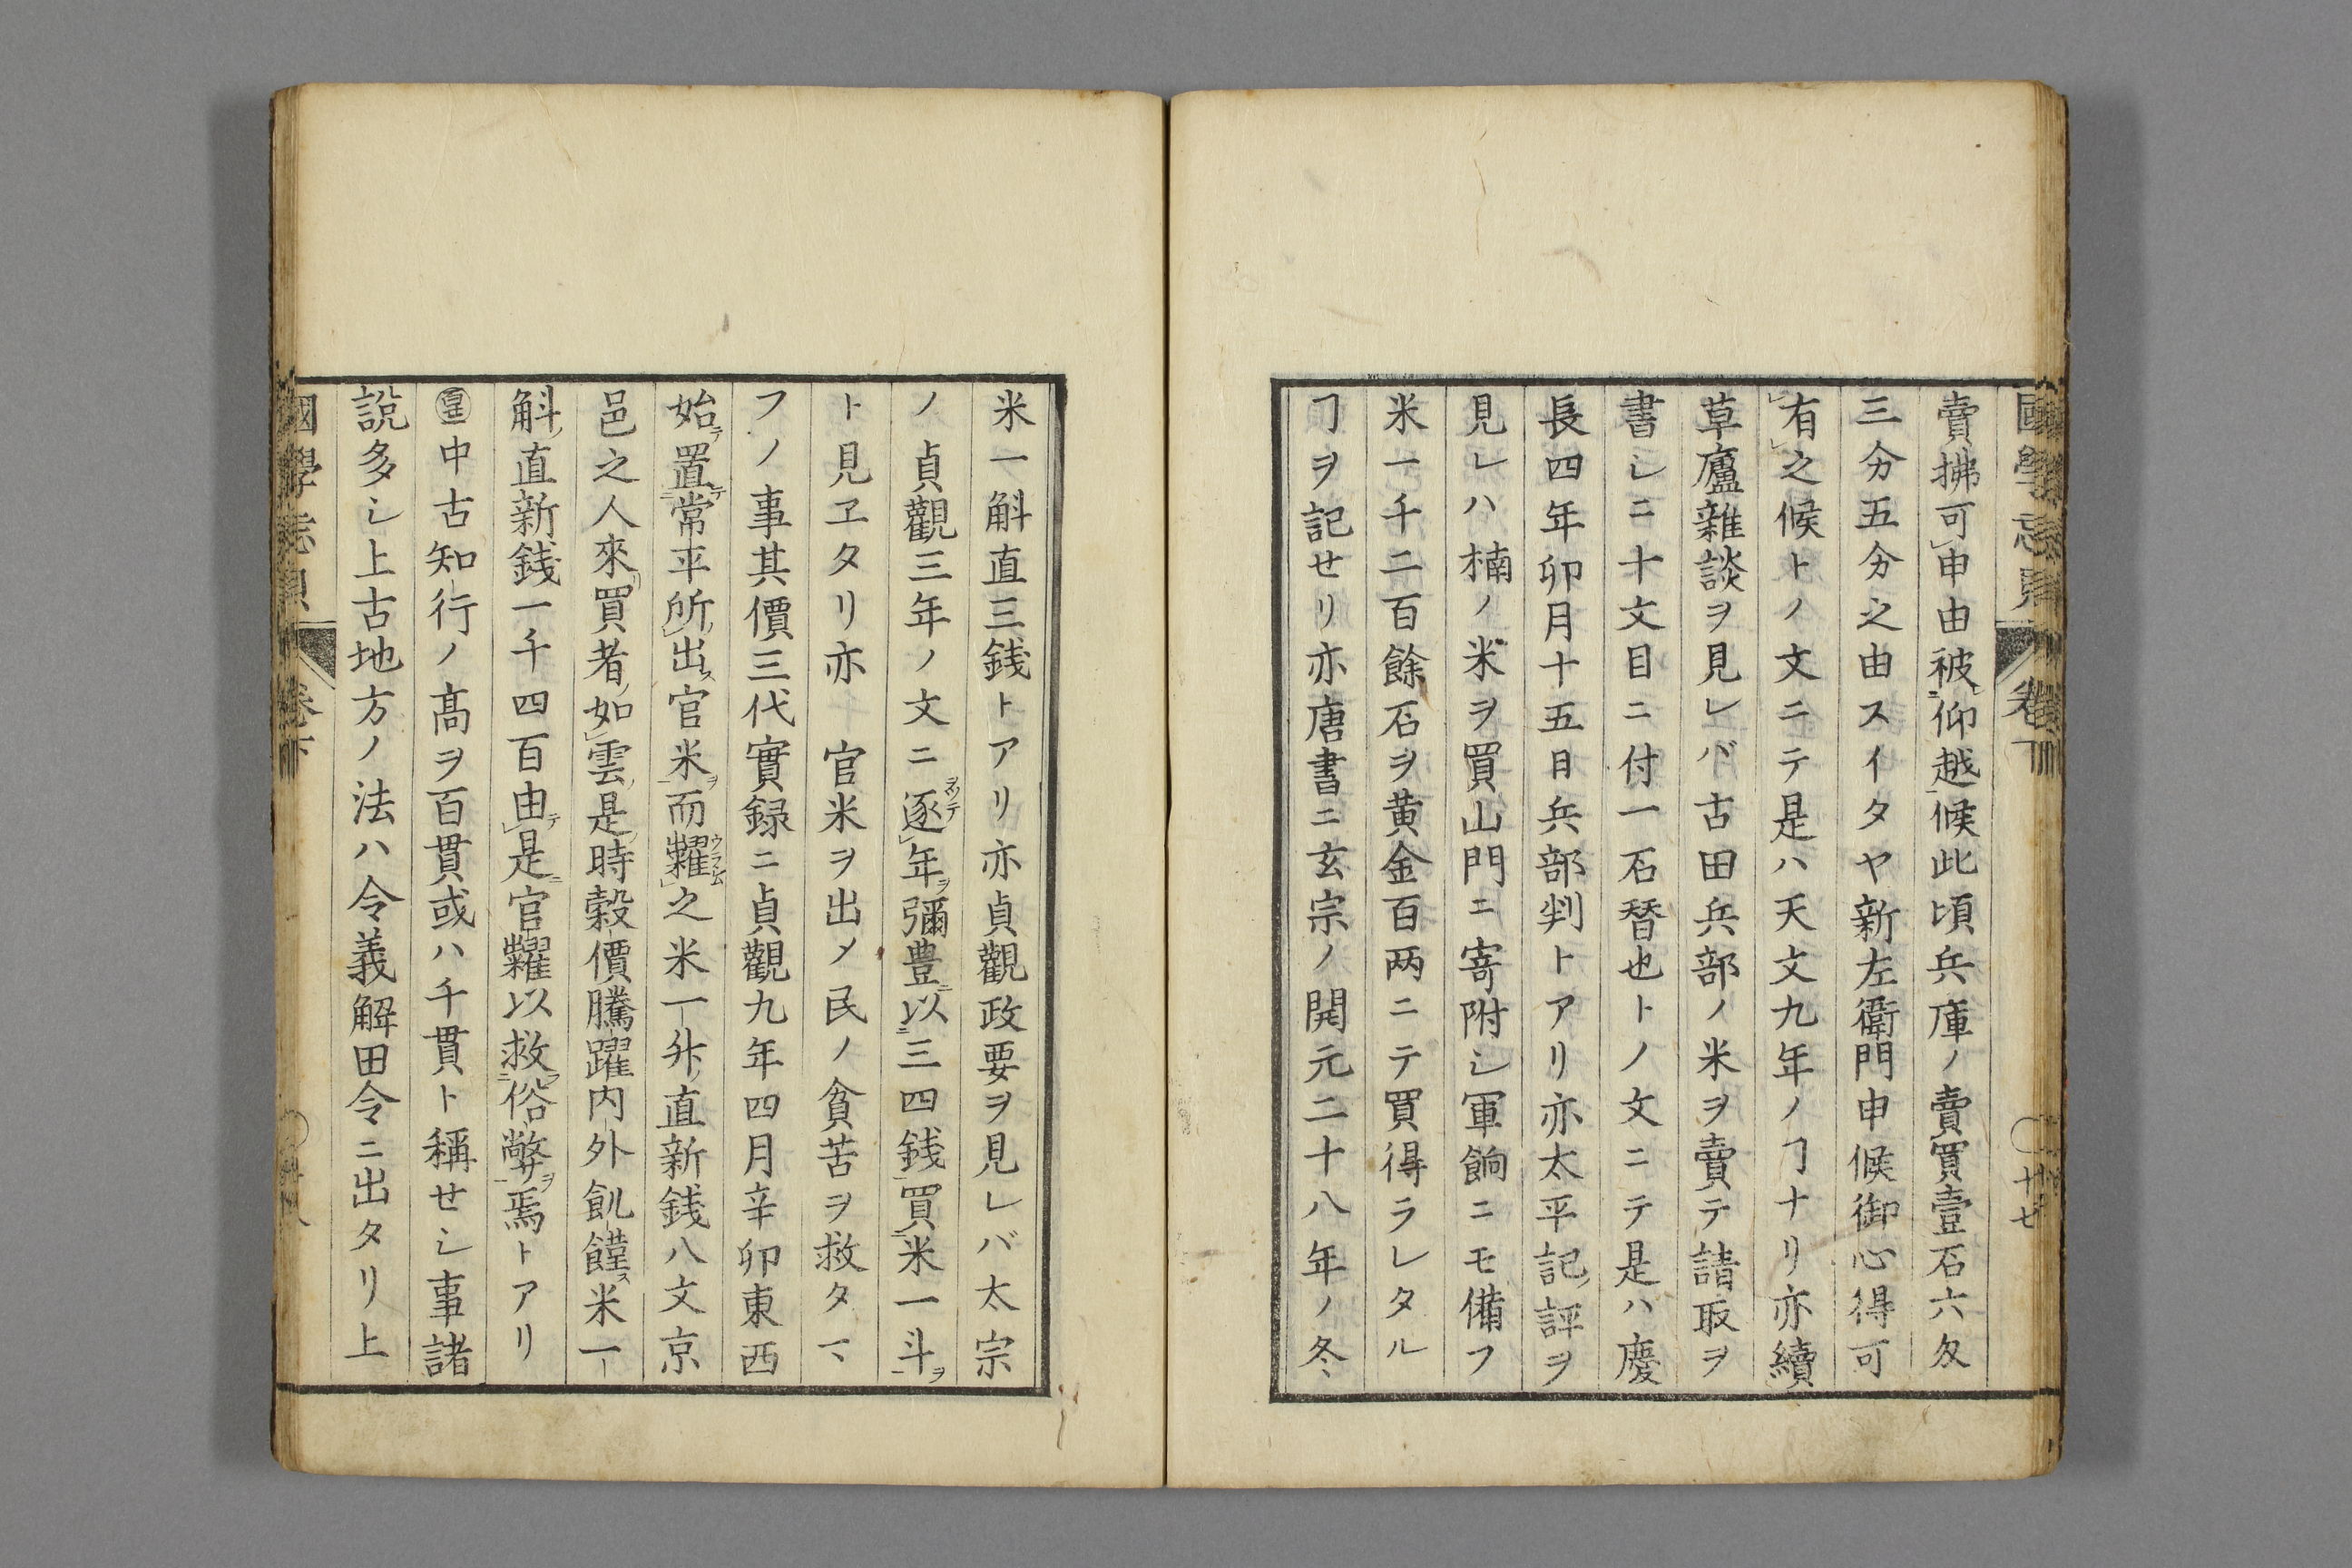 賣拂可申由被仰越候此頃兵庫ノ賣買壹石六匁
三分五分之由スイタヤ新左衞門申候御心得可
有之候トノ文ニテ是ハ天文九年ノヿナリ亦續
草廬雜談ヲ見レバ古田兵部ノ米ヲ賣テ請取ヲ
書シニ十文目ニ付一石替也トノ文ニテ是ハ慶
長四年卯月十五日兵部判トアリ亦太平記評ヲ
見レハ楠ノ米ヲ買山門ニ寄附シ軍餉ニモ備フ
米一千二百餘石ヲ黄金百两ニテ買得ラレタル
ヿヲ記せリ亦唐書ニ玄宗ノ開元二十八年ノ冬
米一斛直三銭トアリ亦貞觀政要ヲ見レバ太宗
ノ貞觀三年ノ文ニ逐年ヲ彌豊ニ以三四銭買米一斗ヲ
ト見ヱタリ亦官米ヲ出メ民ノ貧苦ヲ救タマ
フノ事其價三代實録ニ貞觀九年四月辛卯東西
始テ置常平所出ス官米ヲ而糶之米一升直新銭八文京
邑之人來買者如雲是時穀價騰躍内外飢饉ス米一
斛直新銭一千四百由テ是ニ官糶以救俗弊ヲ焉トアリ
㊞中古知行ノ髙ヲ百貫或ハ千貫ト稱せシ事諸
說多シ上古地方ノ法ハ令義解田令ニ出タリ上
國學忘貝 卷下